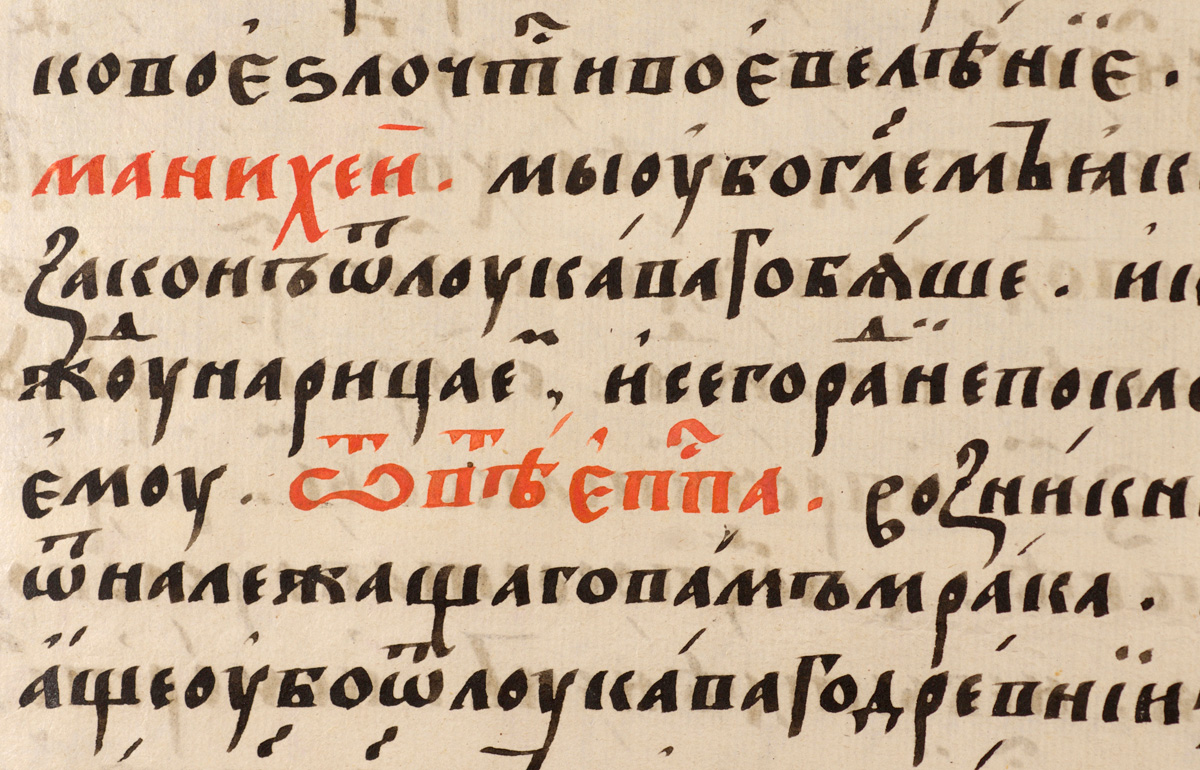 ковоеѕлочт҃ивоевелѣнїе .
манихеи҃ . мыоубогл҃емъꙗк
ꙁаконъѿлоукаваговѧше . ик
жⷣоунарицае , исегораⷣнепокло
емоу . ѿвѣⷮеп҃пⷭа . воꙁникн
ѿналежащаговамъмрака .
ащеоубоѿлоукавагодревнїи